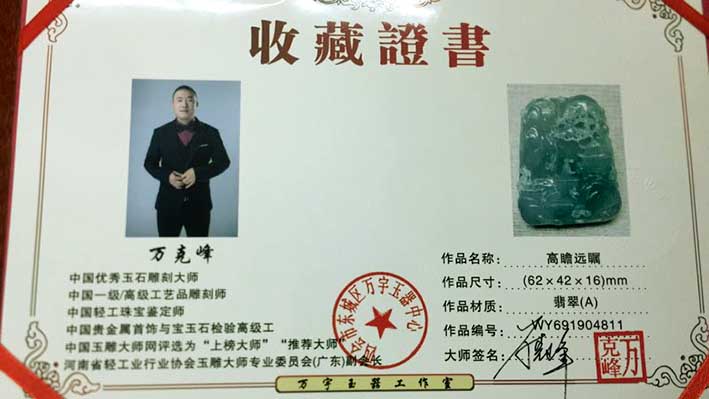 收藏證書
万克峰
中国优秀玉石雕刻大师
中国一级/高级工艺品雕刻师
中国轻工珠宝鉴定师
中国贵金属首饰与宝玉石检验高级工
中国玉雕大师网评选为“上榜大师”“推荐大师”
河南省轻工业行业协会玉雕大师专业委员会(广东)副会长
作品名称：高瞻远嘱
作品尺寸：(62×42×16)mm
作品材质：翡翠(A)
作品编号：WY691904811
大师签名：
万克峰
市东城区万宇玉器中心
万宇玉器工作室